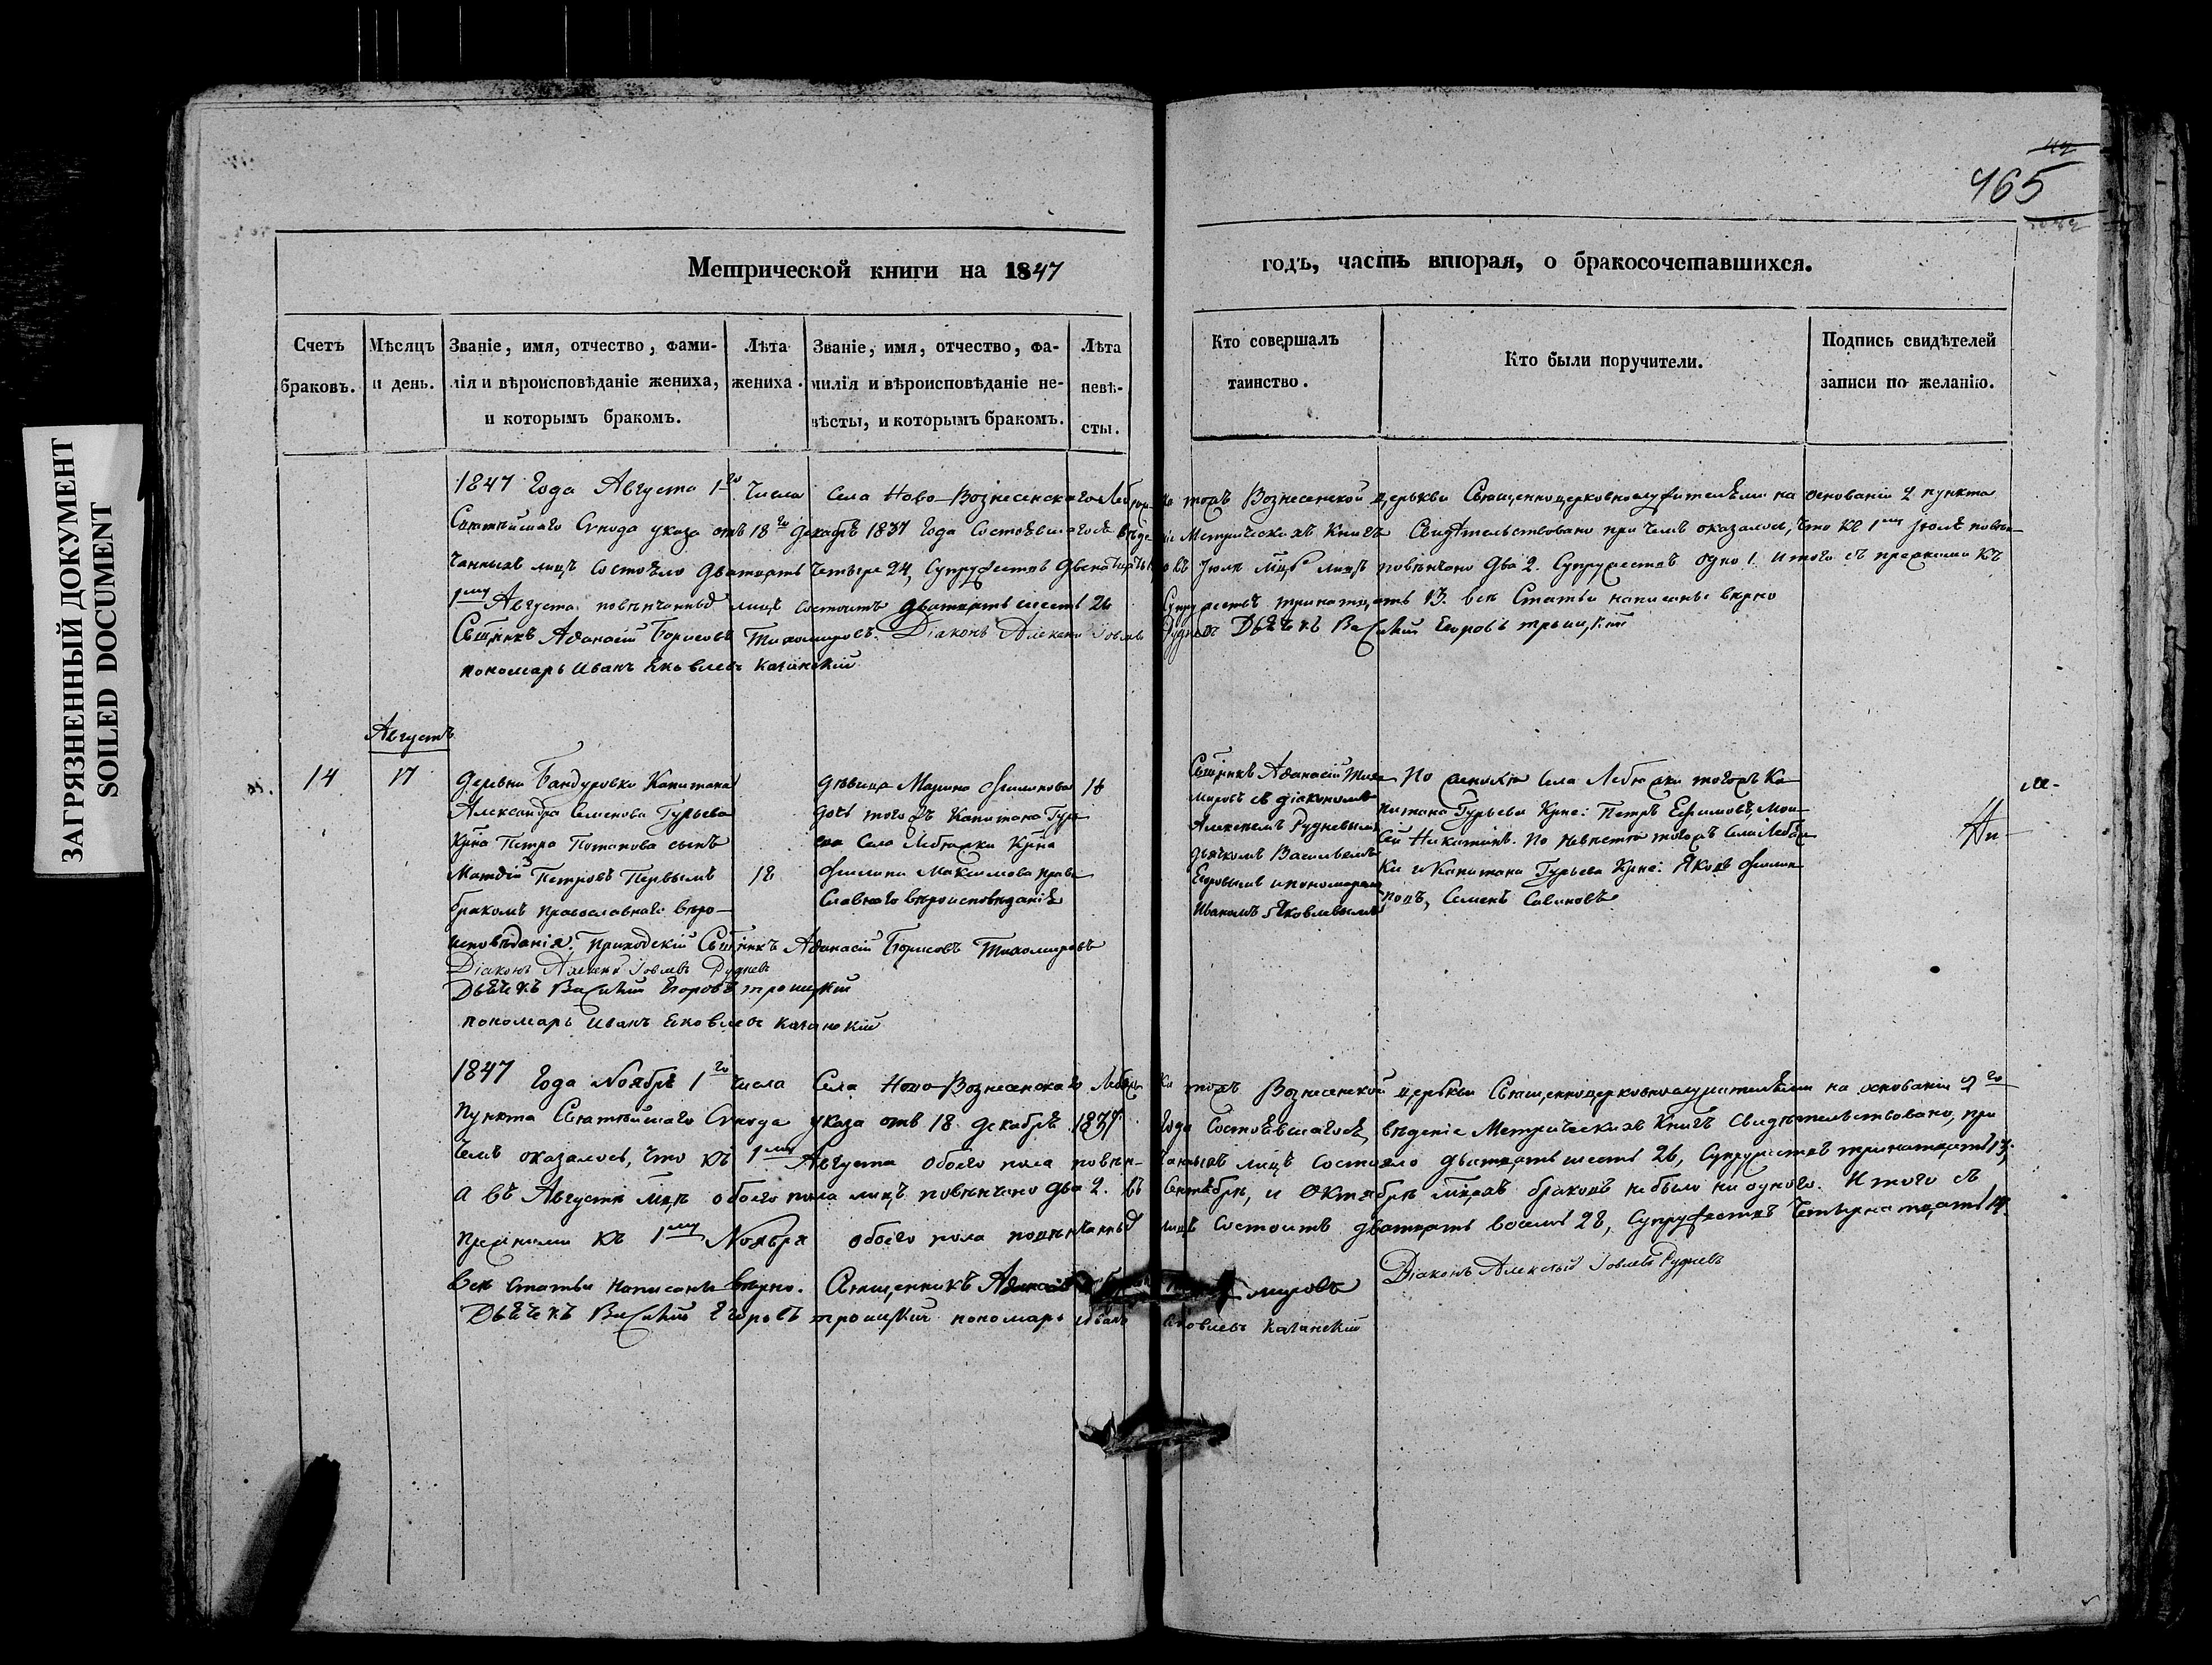 ЗАГРЯЗНЕННЫЙ ДОКУМЕНТ
SOILED DOCUMENT
465
Метрической книги на 1847
годъ, часть вторая, о бракосочетавшихся.
Счетъ браковъ.
Мѣсяцъ и день.
Званіе, имя, отчество, фами-
лія и вѣроисповѣданіе жениха,
и которымъ бракомъ.
Лѣта жениха.
Званіе, имя, отчество, фа-
милія и вѣроисповѣданіе не-
вѣсты, и которымъ бракомъ.
Лѣта невѣ-
сты.
Кто совершалъ
таинство.
Кто были поручители.
Подпись свидѣтелей
записи по желанію.
1847 Года Августа 1го числа Села Ново-Вознесенскаго тожъ Вознесенской церькви Священноцерковнослужителями на основаніи 2 пункта
Святѣйшаго Сѵнода указа отъ 18го Декабрѣ 1837 Года Состоѣвшагосѣ Метрическихъ Книгъ Свидѣтельствовано при чемъ оказалось, что къ 1му Іюлѣ повѣн-
чанныхъ лицъ Состоѣло дватцать четыре 24, Супружествъ въ Іюлѣ мцѣ лицъ повѣнчано два 2. Супружествъ одно 1. Итого съ прежними къ
1му Августа повѣнчанныхъ лицъ Состоитъ дватцать шесть 26 Супружествъ тринатцать 13. всѣ Статьи написаны вѣрно
Свщнникъ Афанасій Борисовъ Тихомировъ. Діаконъ Алексѣй Іовлевъ Рудневъ Дьѣчекъ Василій Егоровъ троицкій
пономарь Иванъ Яковлевъ Казанскій
Августъ
14
17
деревни Бандуровки Капитана
Александра Семенова Гурьева
Крна Петра Потапова сынъ
Матфій Петровъ Первымъ
бракомъ православнаго вѣро-
исповѣданія. Приходскій Свщнникъ Афанасій Борисовъ Тихомировъ
Діаконъ Алексѣй Іовлевъ Рудневъ
Дьѣчекъ Василій Егоровъ троицкій
пономарь Иванъ Яковлевъ Казанскій
18
дѣвица Марина Филипова
дочь того жъ Капитана Гурь
ева Села Лебяжки Крна
Филипа Максимова право
Славнаго вѣроисповѣданіѣ
Свщнникъ Афанасій Тихо
мировъ съ діакономъ
Алексѣемъ Рудневымъ
дьячкомъ Васильемъ
Егоровымъ и пономаремъ
Иваномъ Яковлевымъ
По женихѣ Села Лебяжки тогожъ Ка
питана Гурьева Крне: Петръ Ефимовъ, Мои
сей Никитинъ. По невѣстѣ тогожъ Села Лебяж
ки и Капитана Гурьева Крне: Яковъ Филип
повъ, Семенъ Савиновъ
1847 Года Ноябрѣ 1го числа Села Ново-Вознесенскаго тожъ Вознесенской церькви Священноцерковнослужителями на основаніи 2го
Пункта Святѣйшаго Сѵнода указа отъ 18 декабрѣ 1837 Года Состоѣвшагосѣ, вѣденіе Метрическихъ Книгъ Свидѣтельствовано, при
чемъ оказалось, что къ 1му Августа обоего пола повѣн-чанныхъ лицъ Состояло дватцать шесть 26, Супружествъ тринатцать 13;
а въ Августѣ мцѣ обоего пола лицъ повѣнчано два 2. въ Сентябрѣ, и Октябрѣ мцахъ браковъ небыло ни одного. Итого съ
прежними къ 1му Ноября обоего пола повѣнчанныхъ лицъ Состоитъ дватцать восемь 28, Супружествъ четырнатцать 14.
Всѣ Статьи написаны вѣрно. Священникъ Афанасій мировъ Діаконъ Алексѣй Іовлевъ Рудневъ
Дьѣчекъ Василій Егоровъ троицкій пономарь Иванъ Яковлевъ Казанскій